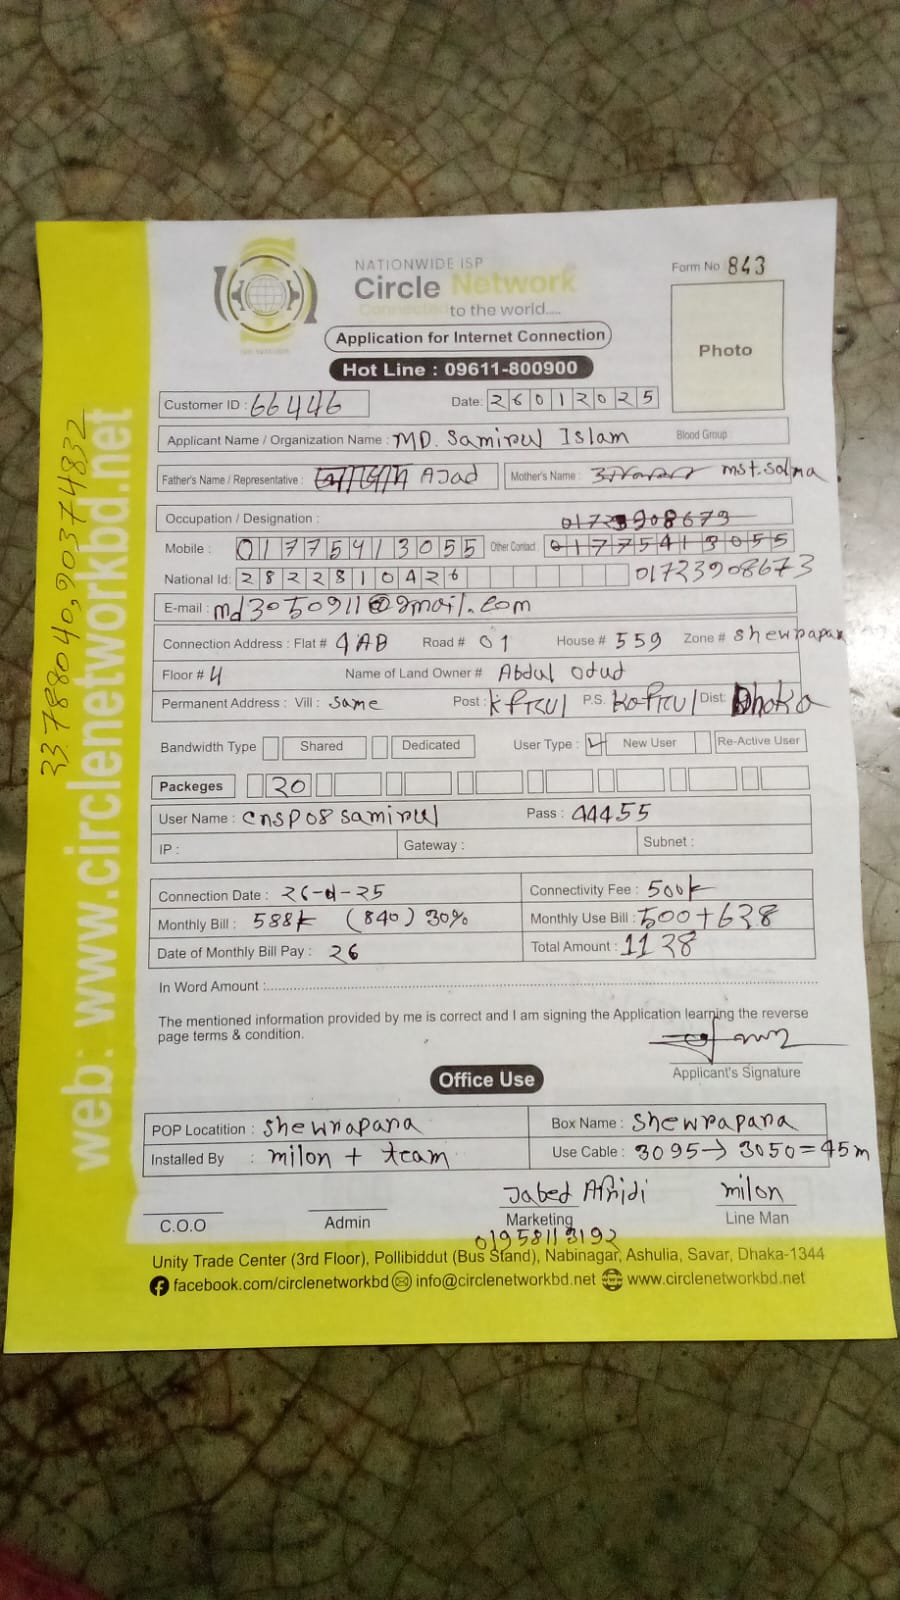 NATIONWIDE ISP
Circle Network
Connected to the world.....
Form No 843
Photo
Application for Internet Connection
Hot Line : 09611-800900
Customer ID : 66446
Date: 26012025
Applicant Name / Organization Name : MD. Samirul Islam Blood Group
Father's Name / Representative : Ajad Mother's Name : mst. Salma
Occupation / Designation :
Mobile : 01775413055 Other Contact : 01775413055
National Id: 2822810426 01723908673
E-mail : md3050911@gmail.com
Connection Address : Flat # 4AB Road # 01 House # 559 Zone # shewrapara
Floor # 4 Name of Land Owner # Abdul Odud
Permanent Address : Vill : same Post : P.S. Kafrul Dist: Dhaka
Bandwidth Type Shared Dedicated User Type : New User Re-Active User
Packeges 20
User Name : cnsp08samirul Pass : 44455
IP : Gateway : Subnet :
Connection Date : 26-1-25 Connectivity Fee : 500৳
Monthly Bill : 588৳ (840) 30% Monthly Use Bill : 500+628
Date of Monthly Bill Pay : 26 Total Amount : 1128
In Word Amount :
The mentioned information provided by me is correct and I am signing the Application learning the reverse
page terms & condition.
Applicant's Signature
Office Use
POP Locatition : shewrapara Box Name : shewrapara
Installed By : milon + team Use Cable : 3095→3050=45m
Jabed Afridi milon
C.O.O Admin Marketing Line Man
01958113192
Unity Trade Center (3rd Floor), Pollibiddut (Bus Stand), Nabinagar, Ashulia, Savar, Dhaka-1344
facebook.com/circlenetworkbd info@circlenetworkbd.net www.circlenetworkbd.net
web: www.circlenetworkbd.net
33.788040,90374832